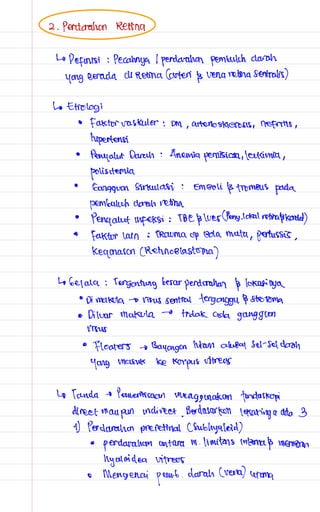 2. Perdarahan Retina
↳ Definisi : Pecahnya / perdarahan pembuluh darah
yang berada di Retina (arteri & vena retina sentralis)
↳ Etiologi
• Faktor vaskuler : DM, arteriosklerosis, nefritis,
hipertensi
• Penyakit Darah : Anemia pernisiosa, leukimia,
polisitemia
• Gangguan Sirkulasi : Emboli & trombus pada
pembuluh darah retina
• Penyakit infeksi : TBC & lues
• Faktor lain : Trauma op bola mata, pertussis,
keganasan (Retinoblastoma)
↳ Gejala : Tergantung besar perdarahan & lokasinya
• Di makula → visus sentral terganggu & skotoma
• Diluar makula → tidak ada gangguan
visus
• Floaters → Bayangan hitam akibat Sel-Sel darah
yang masuk ke korpus vitreus
↳ Tanda → Pemeriksaan menggunakan funduskopi
direct maupun indirect. Berdasarkan letaknya ada 3
1) Perdarahan preretinal (Subhyaloid)
• perdarahan antara m. limitans interna & membran
hyaloidea vitreus
• Mengenai pemb. darah (vena) utama